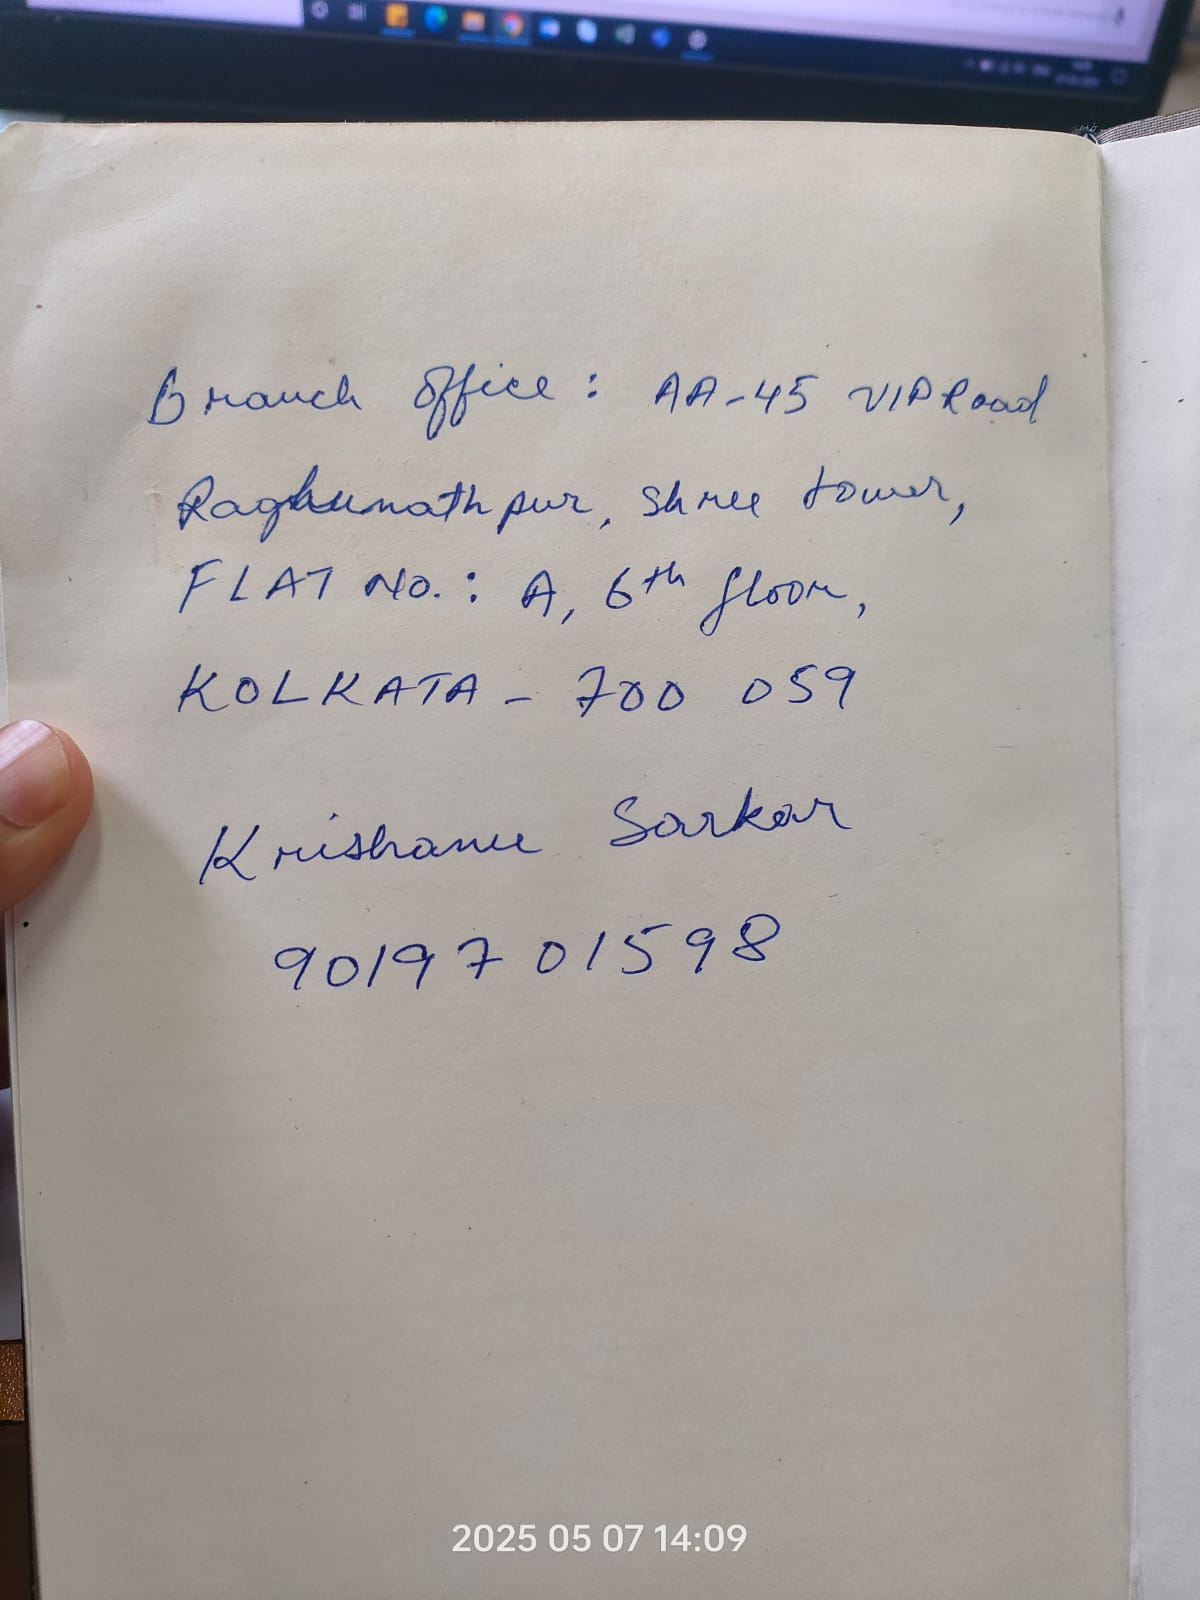 Branch office : AA-45 VIP Road
Raghunathpur, Shree tower,
FLAT No. : A, 6th floor,
KOLKATA - 700 059
Krishanu Sarkar
90197 01598
2025 05 07 14:09